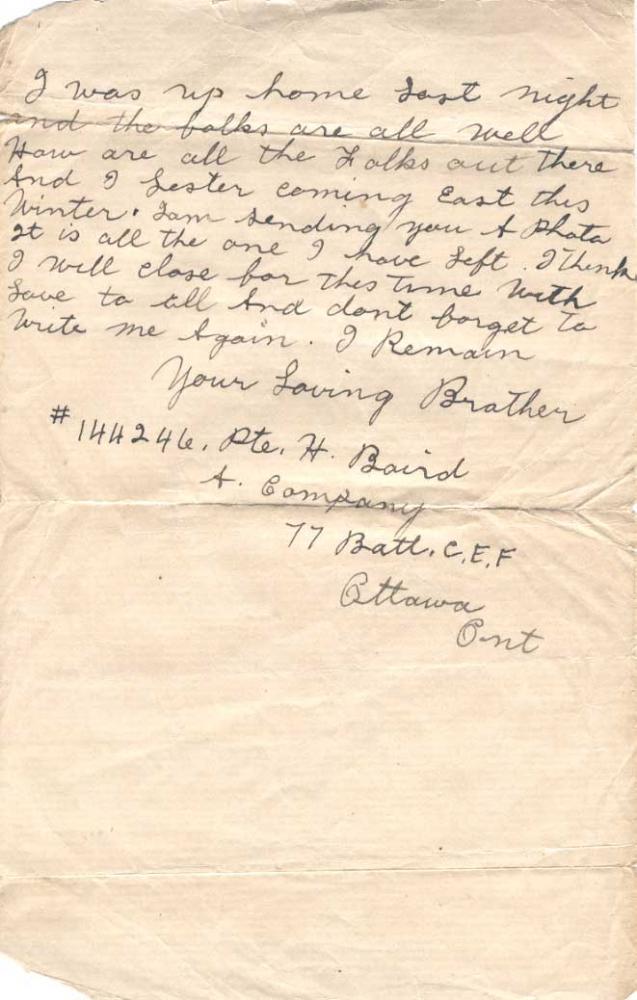 I was up home Last night
and the folks are all well
How are all the Folks out there
And I Lester coming East this
Winter. I am sending you A Photo
It is all the one I have Left. I Think
I will close for this Time With
Love to all And dont forget To
Write me Again. I Remain
Your Loving Brother
#144246. Pte. H. Baird
A. Company
77 Batt. C.E.F
Ottawa
Ont